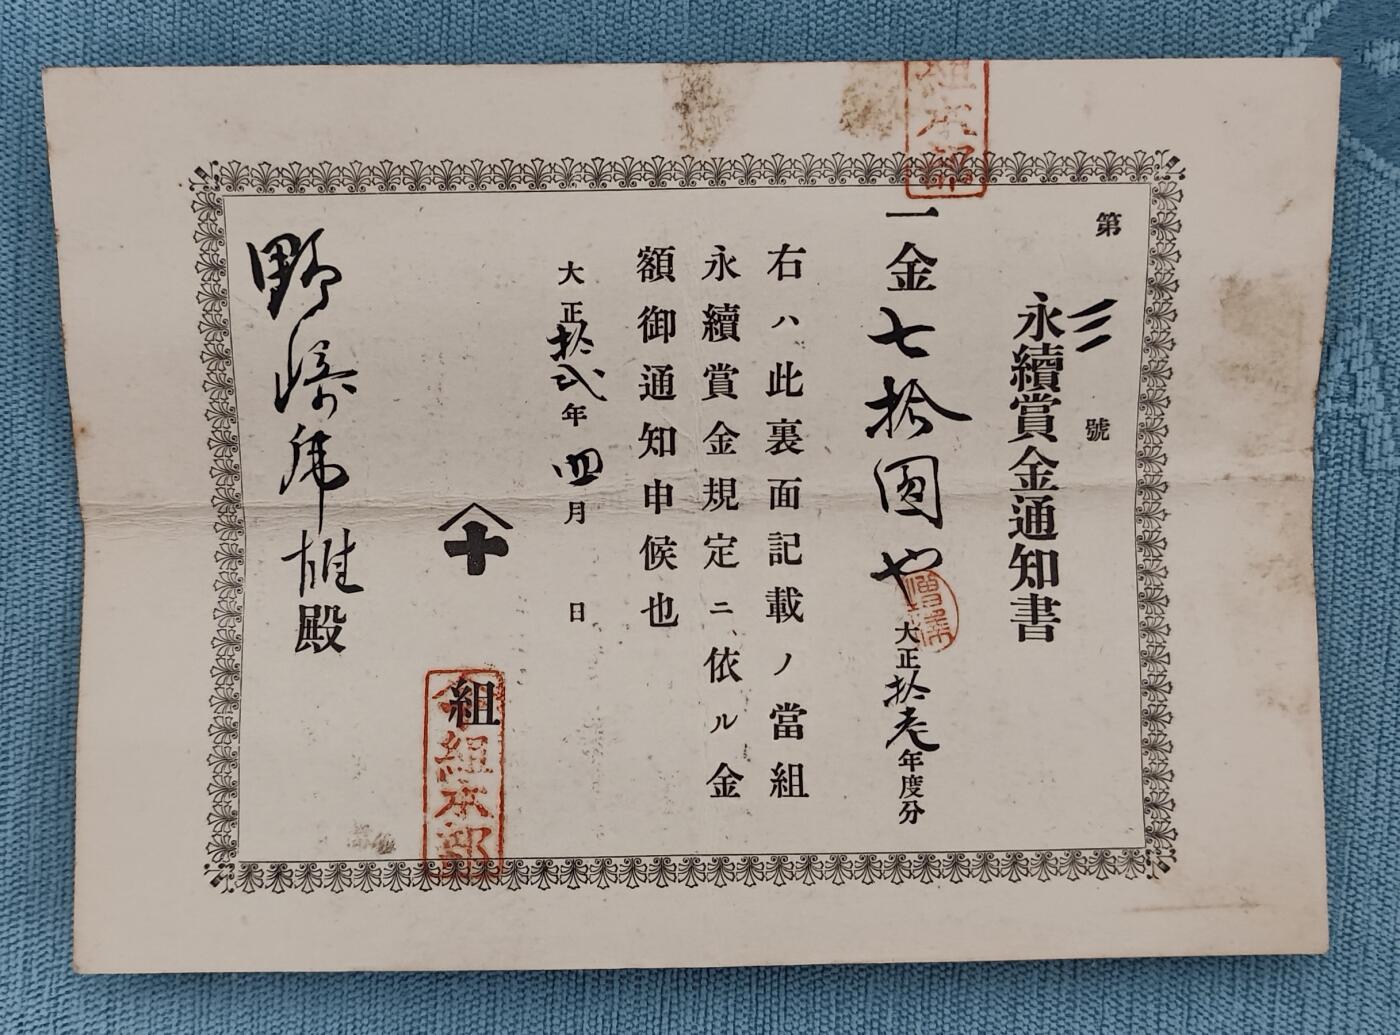 第三號
永續賞金通知書
一金七拾圓也 大正拾壱年度分
右ハ此裏面記載ノ當組
永續賞金規定ニ依ル金
額御通知申候也
大正拾弐年四月 日
組
組本部
野崎席雄殿
組本部